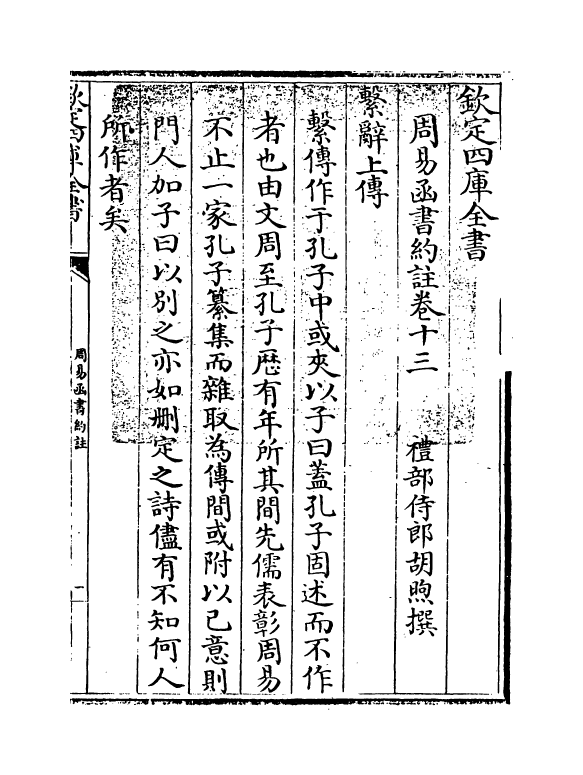 欽定四庫全書
周易函書約註卷十三 禮部侍郎胡煦撰
繫辭上傳
繫傳作于孔子中或夾以子曰蓋孔子固述而不作
者也由文周至孔子歴有年所其間先儒表彰周易
不止一家孔子纂集而雜取為傳間或附以己意則
門人加子曰以别之亦如刪定之詩儘有不知何人
所作者矣
欽定四庫全書
周易函書約註
一